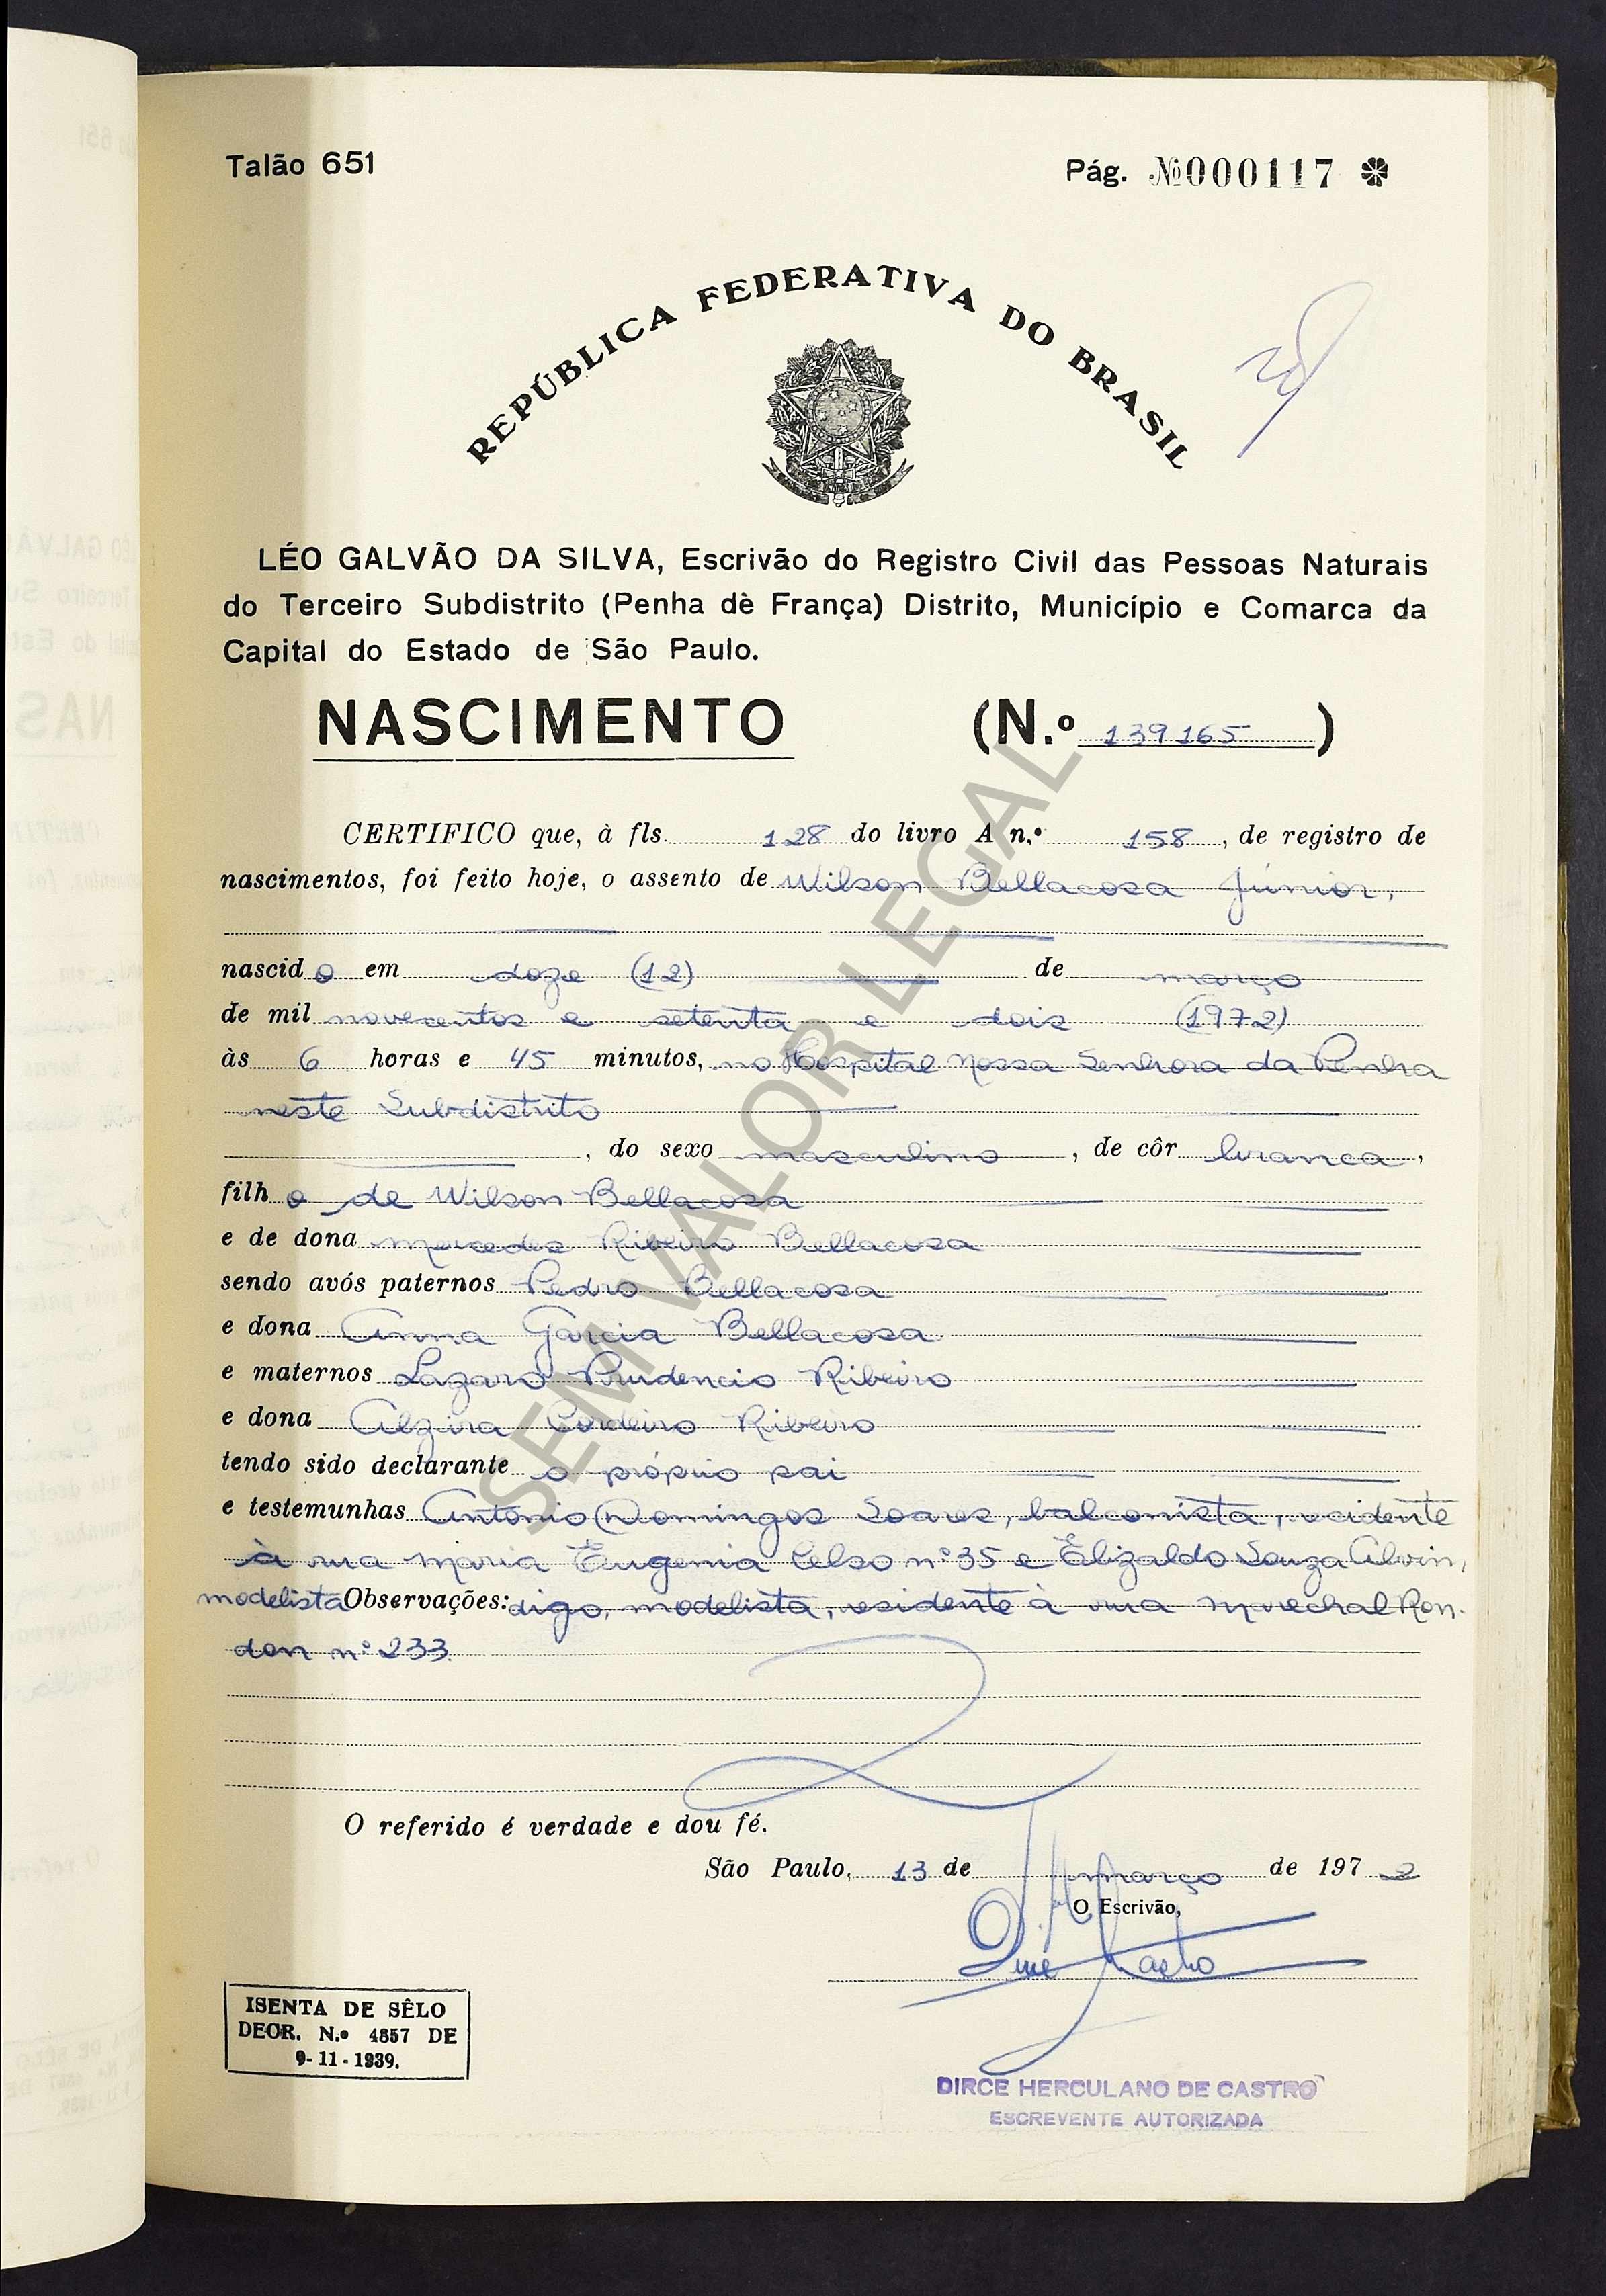 Talão 651
Pág. №000117
REPÚBLICA FEDERATIVA DO BRASIL
LÉO GALVÃO DA SILVA, Escrivão do Registro Civil das Pessoas Naturais
do Terceiro Subdistrito (Penha dè França) Distrito, Município e Comarca da
Capital do Estado de São Paulo.
NASCIMENTO (N.º 139165)
CERTIFICO que, à fls. 128 do livro A n.º 158, de registro de
nascimentos, foi feito hoje, o assento de Wilson Bellacosa Júnior,
nascido em doze (12) de março
de mil novecentos e setenta e dois (1972)
às 6 horas e 45 minutos, no Hospital Nossa Senhora da Penha
neste Subdistrito
, do sexo masculino, de côr branca,
filho de Wilson Bellacosa
e de dona Mercedes Ribeiro Bellacosa
sendo avós paternos Pedro Bellacosa
e dona Anna Garcia Bellacosa
e maternos Lazaro Prudencio Ribeiro
e dona Alzira Cordeiro Ribeiro
tendo sido declarante o próprio pai
e testemunhas Antonio Domingos Soares, balconista, residente
à rua Maria Eugenia Celso nº 35 e Elizaldo Souza Alvin,
modelista Observações: digo, modelista, residente à rua Marechal Ron-
don nº 233.
O referido é verdade e dou fé.
São Paulo, 13 de março de 1972
O Escrivão,
Dirce Castro
ISENTA DE SÊLO
DECR. N.º 4857 DE
9-11-1939.
DIRCE HERCULANO DE CASTRO
ESCREVENTE AUTORIZADA
SEM VALOR LEGAL